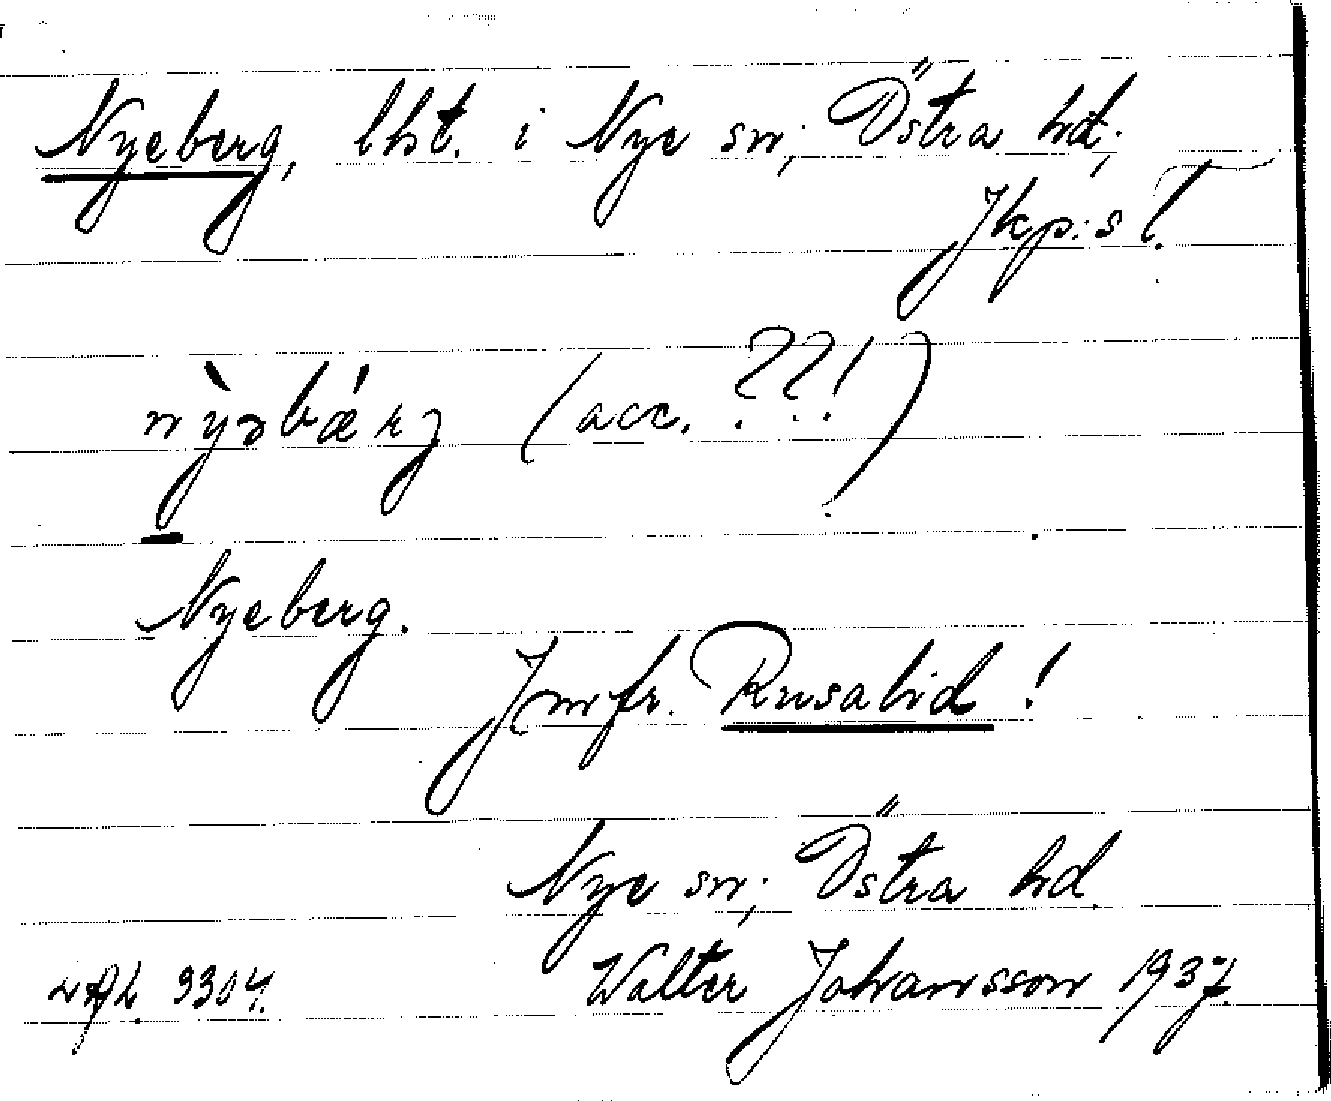 Nyeberg, lht. i Nye sn; Östra hd;
Jkp:s l.
nỳəbǽrj (acc. ??!)
Nyeberg.
Jmfr. Rusabid!
Nye sn; Östra hd
Walter Johansson 1937